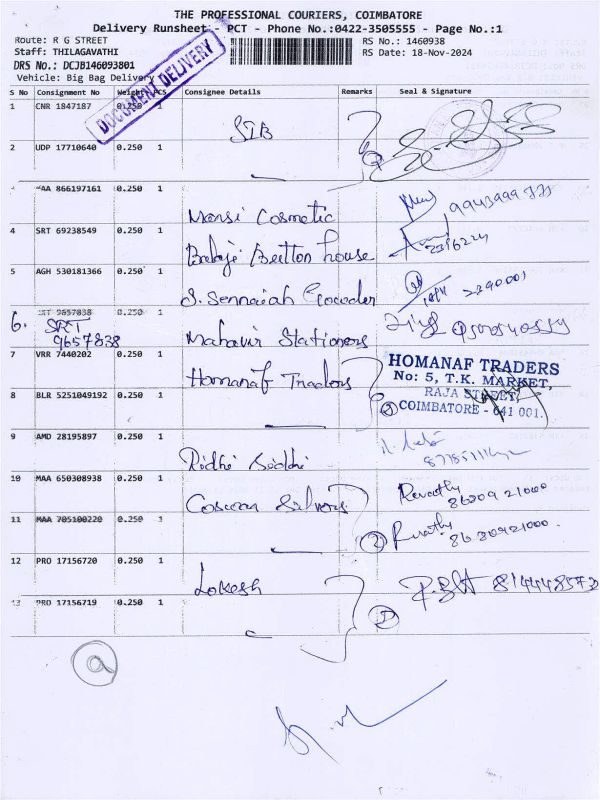 THE PROFESSIONAL COURIERS, COIMBATORE
Delivery Runsheet - PCT - Phone No.:0422-3505555 - Page No.:1
Route: R G STREET
RS No.: 1460938
Staff: THILAGAVATHI
RS Date: 18-Nov-2024
DRS No.: DCJB146093801
Vehicle: Big Bag Delivery
DOCUMENT DELIVERY
S No Consignment No Weight PCS Consignee Details Remarks Seal & Signature
1 CNR 1847187 0.250 1
SIB
2 UDP 17710640 0.250 1
MAA 866197161 0.250 1
Mansi Cosmetic
4 SRT 69238549 0.250 1
Balaji Button house
5 AGH 530181366 0.250 1
S. Sennaiah
6. SRT 9657838 0.250 1
SRT
9657838
Mahavir Stationers
7 VRR 7440202 0.250 1
Homanaf Traders
HOMANAF TRADERS
No: 5, T.K. MARKET,
RAJA STREET,
COIMBATORE - 641 001.
8 BLR 5251049192 0.250 1
9 AMD 28195897 0.250 1
Ridhi Siddhi
10 MAA 650308938 0.250 1
Revathy
86809 21000
11 MAA 705100220 0.250 1
Revathy
8680921000.
12 PRO 17156720 0.250 1
Lokesh
13 PRO 17156719 0.250 1